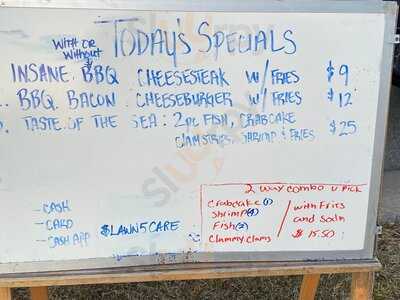 WITH OR
WITHOUT
TODAY'S SPECIALS
INSANE BBQ CHEESESTEAK W/ FRIES $9
BBQ BACON CHEESEBURGER W/ FRIES $12
TASTE OF THE SEA: 2pc FISH, CRABCAKE $25
CLAM STRIPS, SHRIMP & FRIES
- CASH
- CARD
- CASH APP $LAWN5CARE
2 way combo u PICK
Crabcake (1)
Shrimp (9)
Fish (2)
Clammy clams
with Fries
and Soda
$15.50